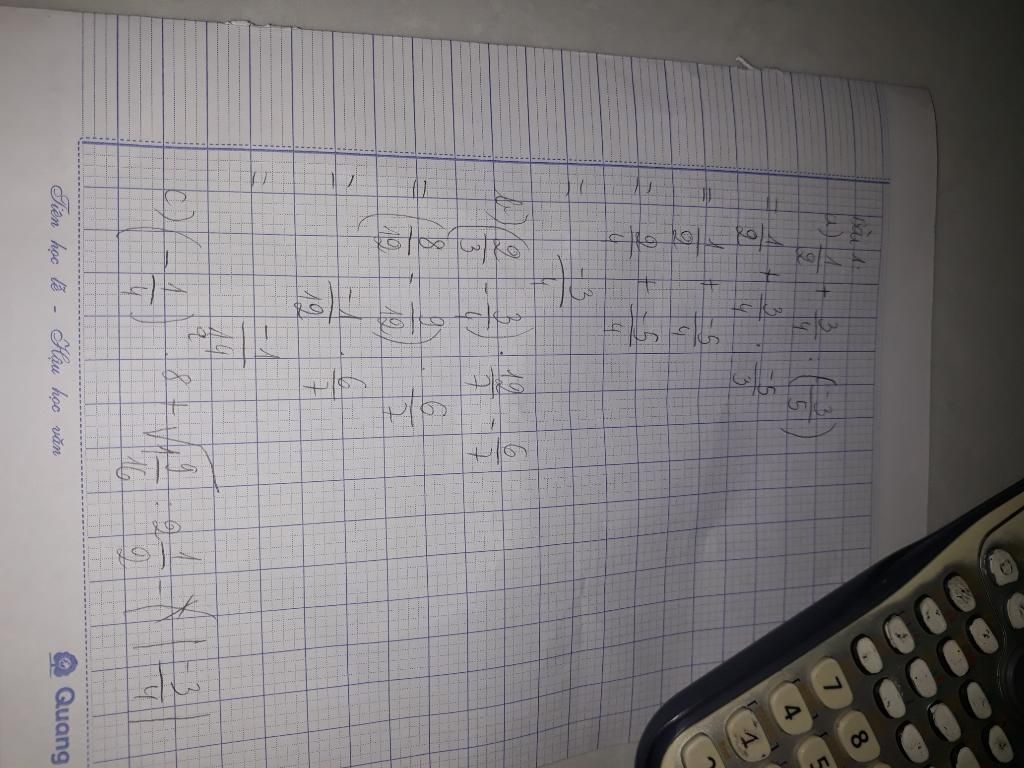 Câu 1.
a) 1/2 + 3/4 : (-3/5)
= 1/2 + 3/4 . -5/3
= 1/2 + -5/4
= 2/4 + -5/4
= -3/4
b) (2/3 - 3/4) . 12/7 - 6/7
= (8/12 - 9/12) . 6/7
= -1/12 . 6/7
= -1/14
c) (-1/4) . 8 + √(9/16) : 2 1/2 - |-3/4|
Tiên học lễ - Hậu học văn
Quang
7
8
4
5
1